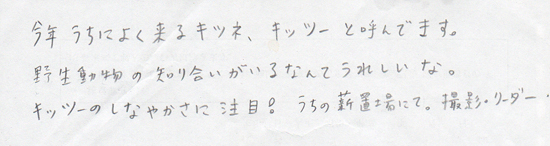 今年うちによく来るキツネ、キッツーと呼んでます。
野生動物の知り合いがいるなんてうれしいな。
キッツーのしなやかさに注目! うちの薪置場にて。撮影・リーダー・